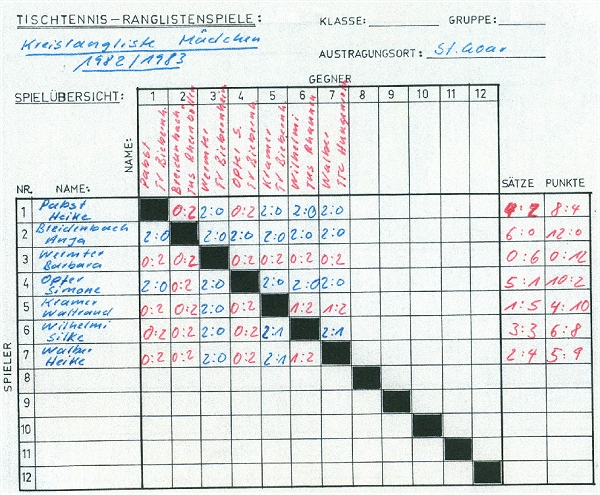 TISCHTENNIS–RANGLISTENSPIELE: KLASSE: GRUPPE:
Kreisrangliste Mädchen
1982/1983
AUSTRAGUNGSORT: St. Goar
GEGNER
SPIELÜBERSICHT: 1 2 3 4 5 6 7 8 9 10 11 12
NAME:
Pabst TV Biebernh.
Breidenbach TuS Rhenbøllen
Wermter TV Biebernheim
Opfer S. TV Biebernh.
Kramer TV Biebernh.
Wilhelmi TuS Rhaunen
Walber TTC Hungenroth
NR. NAME: SÄTZE PUNKTE
1 Pabst Heike 0:2 2:0 0:2 2:0 2:0 2:0 4:2 8:4
2 Breidenbach Anja 2:0 2:0 2:0 2:0 2:0 2:0 6:0 12:0
3 Wermter Barbara 0:2 0:2 0:2 0:2 0:2 0:2 0:6 0:12
4 Opfer Simone 2:0 0:2 2:0 2:0 2:0 2:0 5:1 10:2
5 Kramer Waltraud 0:2 0:2 2:0 0:2 1:2 1:2 1:5 4:10
6 Wilhelmi Silke 0:2 0:2 2:0 0:2 2:1 2:1 3:3 6:8
7 Walber Heike 0:2 0:2 2:0 0:2 2:1 1:2 2:4 5:9
8
9
10
11
12
SPIELER